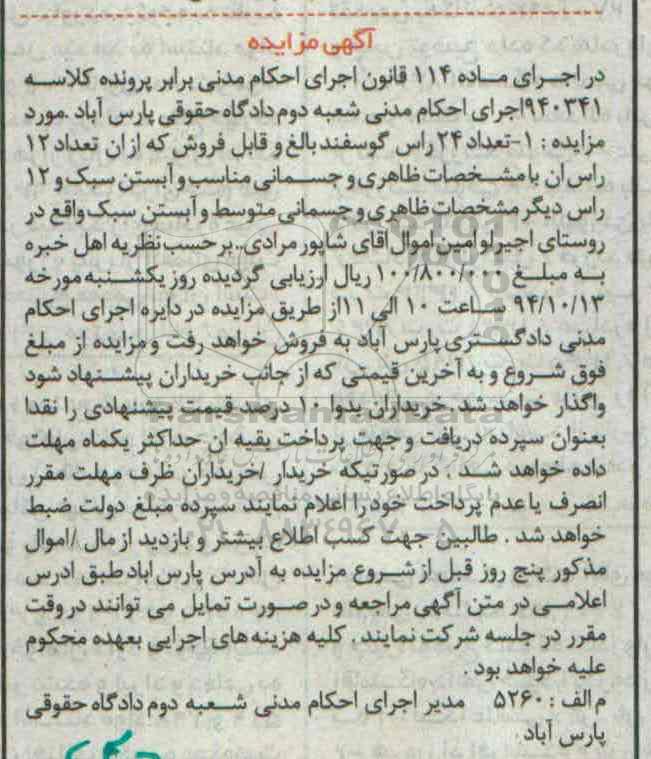 آگهی مزایده
در اجرای ماده ۱۱۴ قانون اجرای احکام مدنی برابر پرونده کلاسه
۹۴۰۳۴۱اجرای احکام مدنی شعبه دوم دادگاه حقوقی پارس آباد .مورد
مزایده : ۱-تعداد ۲۴ راس گوسفند بالغ و قابل فروش که از ان تعداد ۱۲
راس ان با مشخصات ظاهری و جسمانی مناسب و آبستن سبک و ۱۲
راس دیگر مشخصات ظاهری و جسمانی متوسط و آبستن سبک واقع در
روستای اجیرلو امین اموال آقای شاپور مرادی..بر حسب نظریه اهل خبره
به مبلغ ۱۰۰/۸۰۰/۰۰۰ ریال ارزیابی گردیده روز یکشنبه مورخه
۹۴/۱۰/۱۳ ساعت ۱۰ الی ۱۱از طریق مزایده در دایره اجرای احکام
مدنی دادگستری پارس آباد به فروش خواهد رفت و مزایده از مبلغ
فوق شروع و به آخرین قیمتی که از جانب خریداران پیشنهاد شود
واگذار خواهد شد خریداران بدوا ۱۰ درصد قیمت پیشنهادی را نقدا
بعنوان سپرده دریافت و جهت پرداخت بقیه ان حداکثر یکماه مهلت
داده خواهد شد . در صورتیکه خریدار /خریداران ظرف مهلت مقرر
انصرف یا عدم پرداخت خود را اعلام نمایند سپرده مبلغ دولت ضبط
خواهد شد . طالبین جهت کسب اطلاع بیشتر و بازدید از مال /اموال
مذکور پنج روز قبل از شروع مزایده به آدرس پارس اباد طبق ادرس
اعلامی در متن آگهی مراجعه و در صورت تمایل می توانند در وقت
مقرر در جلسه شرکت نمایند . کلیه هزینه های اجرایی بعهده محکوم
علیه خواهد بود .
م الف : ۵۲۶۰ مدیر اجرای احکام مدنی شعبه دوم دادگاه حقوقی
پارس آباد
ParsNamadData
پایگاه اطلاع رسانی مناقصه و مزایده